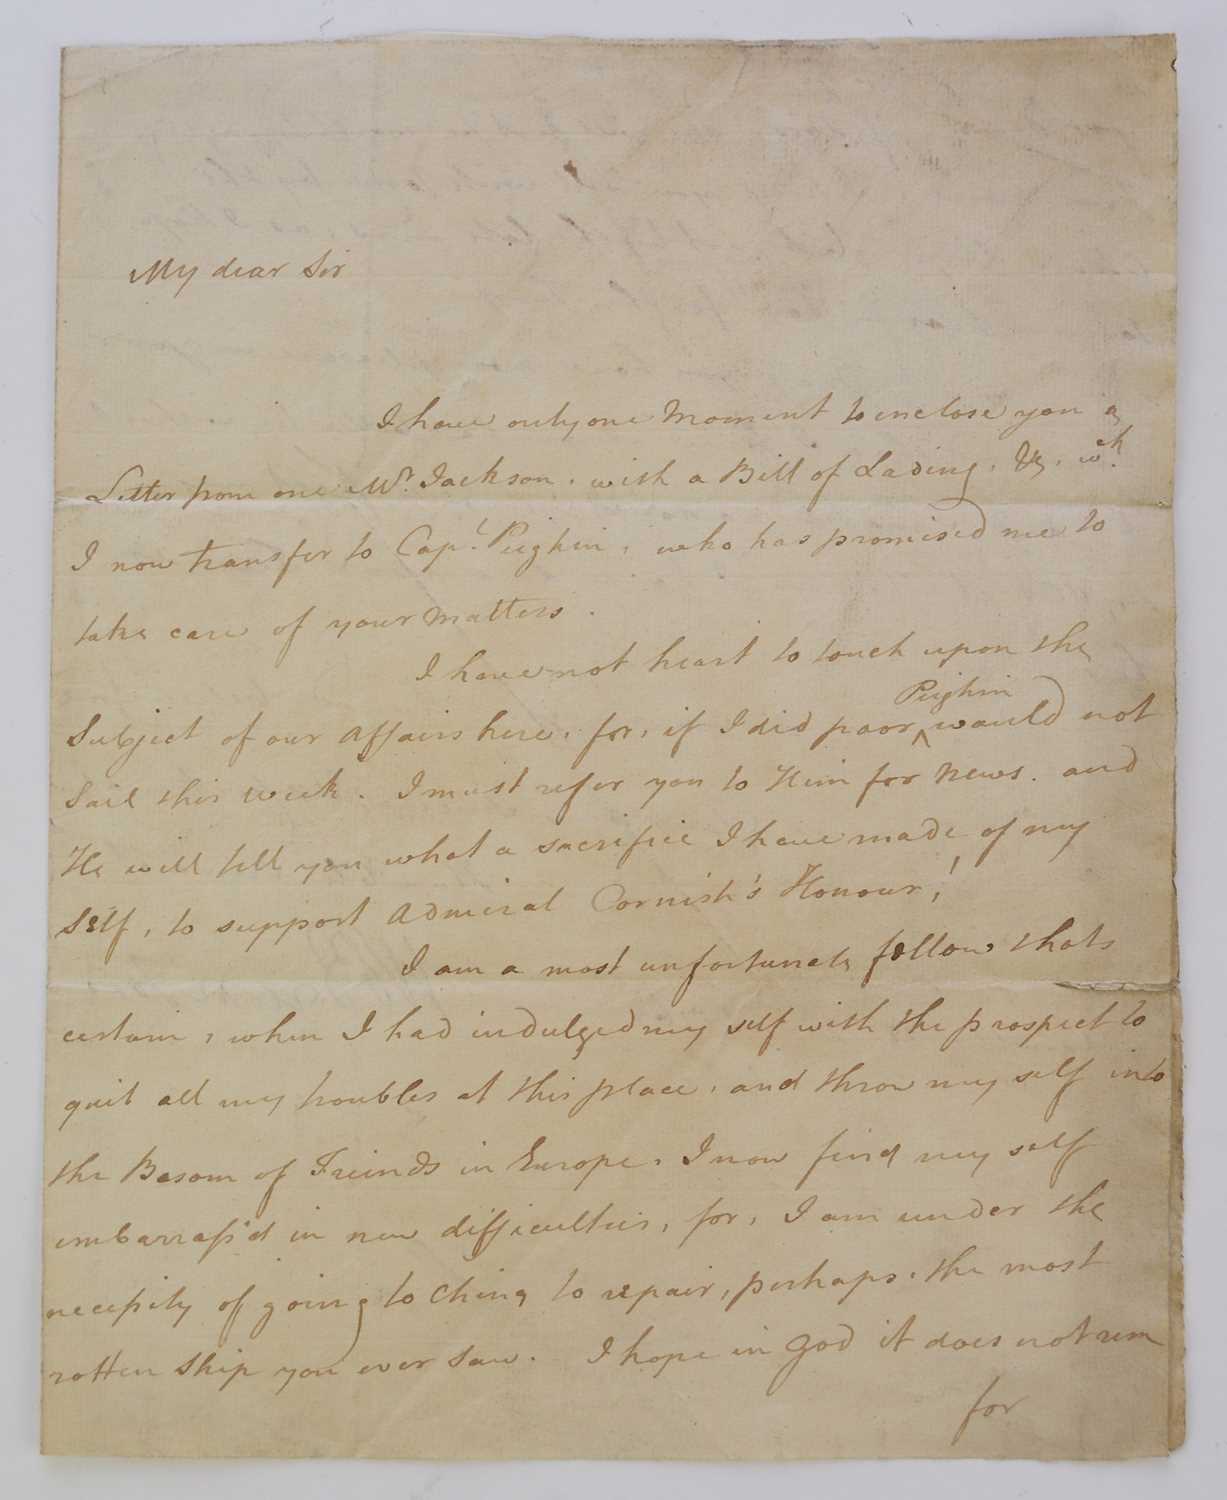 My dear Sir
I have only one Moment to inclose you a
Letter from one Mr. Jackson, with a Bill of Lading, &c, wch.
I now transfer to Capt. Pighin, who has promised me to
take care of your matters.
I have not heart to touch upon the
Pighin
Subject of our affairs here, for, if I did poor ^ would not
Sail this week. I must refer you to Him for news. and
He will tell you what a sacrifice I have made of my
Self, to support Admiral Cornish's Honour,!
I am a most unfortunate fellow thats
certain, when I had indulged my self with the prospect to
quit all my troubles at this place, and throw my self into
the Bosom of Freinds in Europe, I now find my self
embarrass'd in new difficulties, for, I am under the
necessity of going to China to repair, perhaps, the most
rotten Ship you ever saw. I hope in God it does not
for